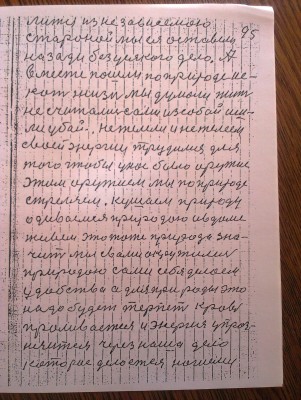 литу из не зависемою 95
стороной мы ся оставим
на зади без уякого дела, А
вместе пошли по природе не-
кот жизн мы думали жит
не считали сами из собой
ли убай-, не тели и не теем
своей энергии трудимся для
того чтобы у нас было оружие
этим оружием мы по природе
стреляем. кушаем природу
одиваемся природою и в доме
живем это тоже природа зна-
чит мы с вами окрутились
природою сами себя делаем
удобства а для природы это
надо будет терпет кровь
проливается и энергия
через наша дело
которое делается нашими